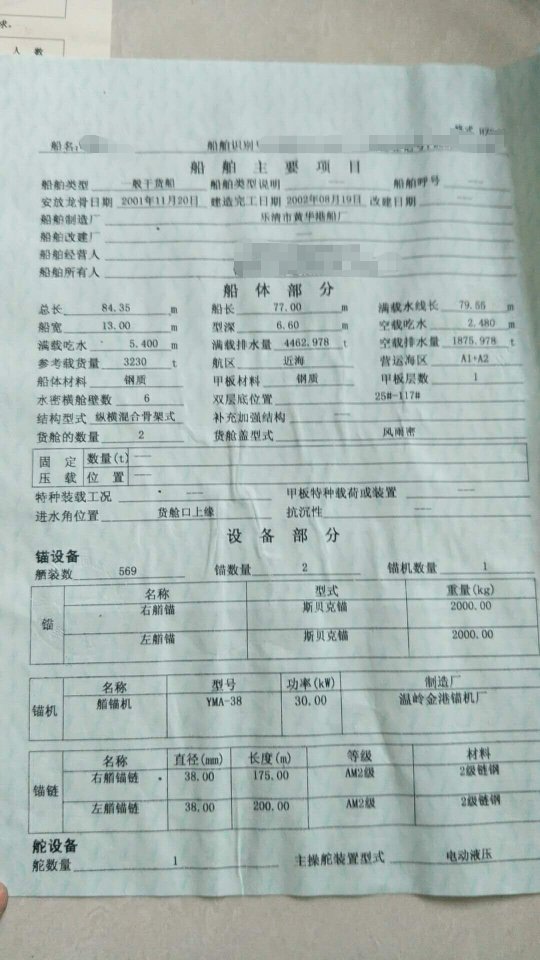 求。
人 数
船名：
船舶识别
船 舶 主 要 项 目
船舶类型 一般干货船 船舶类型说明 —— 船舶呼号 ——
安放龙骨日期 2001年11月20日 建造完工日期 2002年08月19日 改建日期 ——
船舶制造厂 乐清市黄华港船厂
船舶改建厂 ——
船舶经营人
船舶所有人
船 体 部 分
总长 84.35 m 船长 77.00 m 满载水线长 79.55 m
船宽 13.00 m 型深 6.60 m 空载吃水 2.480 m
满载吃水 5.400 m 满载排水量 4462.978 t 空载排水量 1875.978 t
参考载货量 3230 t 航区 近海 营运海区 A1+A2
船体材料 钢质 甲板材料 钢质 甲板层数 1
水密横舱壁数 6 双层底位置 25#-117#
结构型式 纵横混合骨架式 补充加强结构 ——
货舱的数量 2 货舱盖型式 风雨密
固 定 数量(t) ——
压 载 位 置 ——
特种装载工况 —— 甲板特种载荷或装置 ——
进水角位置 货舱口上缘 抗沉性 ——
设 备 部 分
锚设备
舾装数 569 锚数量 2 锚机数量 1
锚 名称 型式 重量(kg)
右艏锚 斯贝克锚 2000.00
左艏锚 斯贝克锚 2000.00
锚机 名称 型号 功率(kW) 制造厂
艏锚机 YMA-38 30.00 温岭金港锚机厂
锚链 名称 直径(mm) 长度(m) 等级 材料
右艏锚链 38.00 175.00 AM2级 2级链钢
左艏锚链 38.00 200.00 AM2级 2级链钢
舵设备
舵数量 1 主操舵装置型式 电动液压